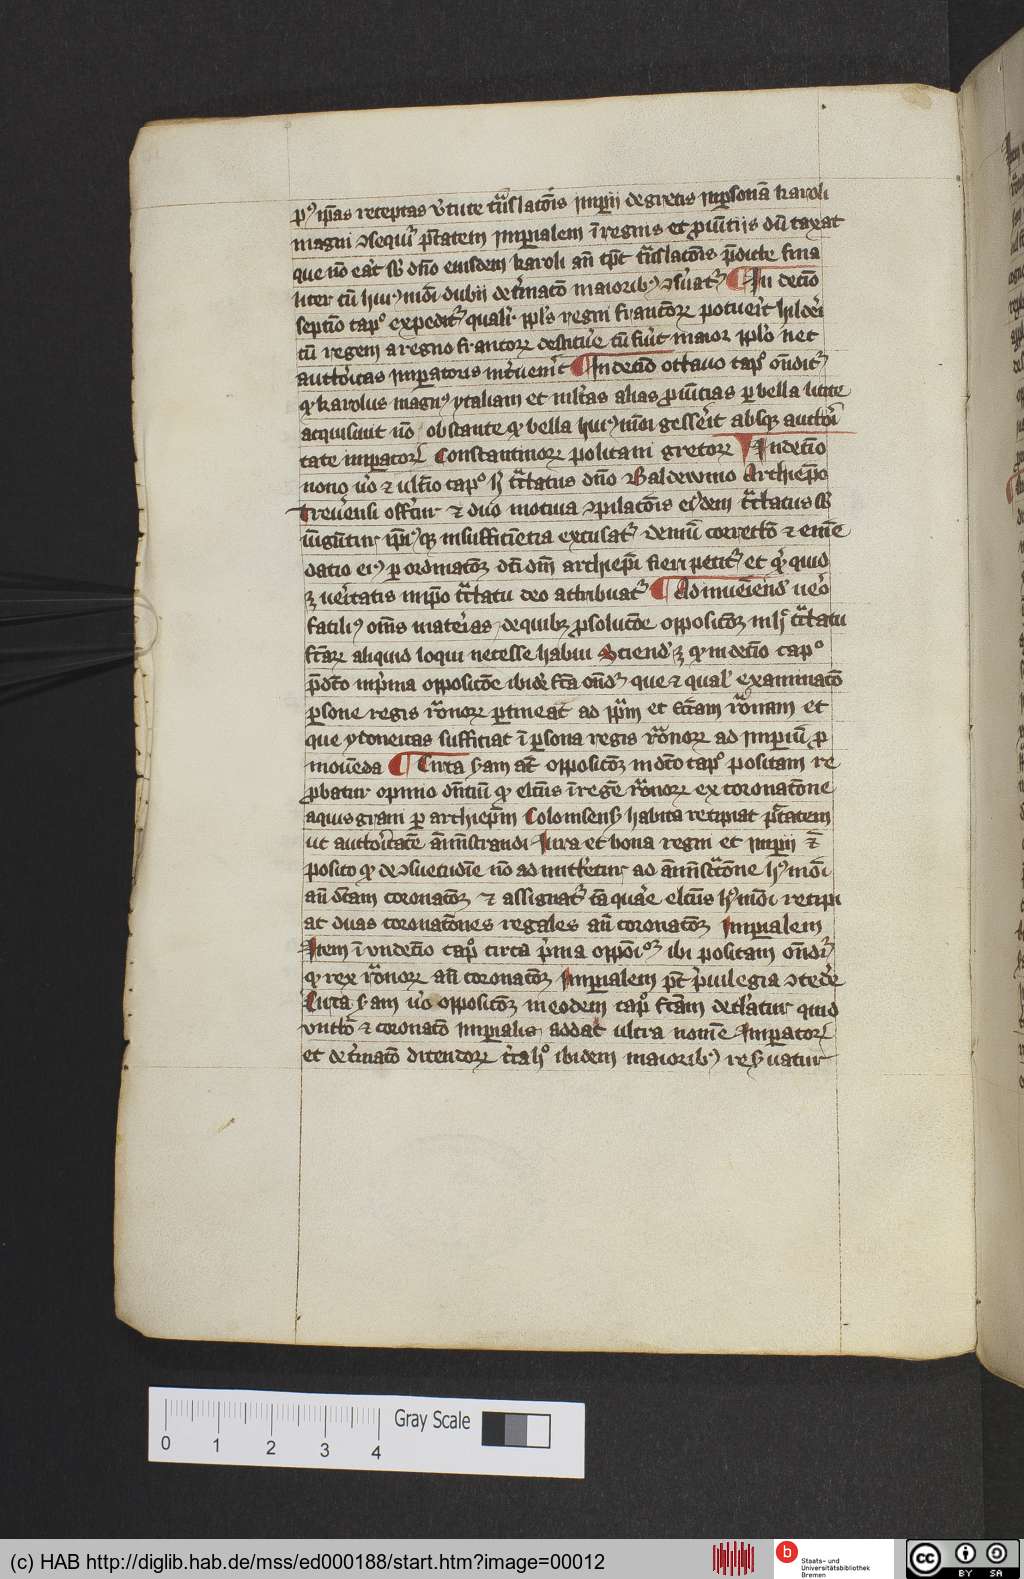 p9 ip̄as receptas v̓tute tͣnslacōis impii de grecis in psonā karoli
magni ꝯsequi p̄tatem Imperialem ī regnis et ꝓuīciis dū taxat
que nō eāt sb̓ dn̄o eiusdem karoli an̄ tp̄c tͣnslacōis p̄dicte fina
liter cū hui9mōi dubii det̓minacō maiorib9 ꝯs̓uat᷑ ¶ In decīo
septīo cap̊ expedit᷑ qualit̓ ppl̓s regni francoꝝ potuer̄t hilderi
cū regem a regno francoꝝ destitue̓ cū fūit maior ppl̓o nec
auctoritas imperatoris int̓uener̄t ¶ In decīo octauo cap̊ on̄dit᷑
ꝙ karolus magn9 ytaliam et ml̓tas alias ꝓuīcias ꝑ bella licite
acquisiuit nō obstante ꝙ bella hui9mōi gesser̄t absqꝫ auctori
tate imperatoꝝ Constantinoꝝ politani grecoꝝ ¶ In decīo
nono v̓o ⁊ ultīo cap̊ hͥ tͣctatus dn̄o Baldewino Archiep̄o
Treuerensi offert᷑ ⁊ duo motiua ꝯpilacōis eiusdem tͣctatus sb̓
iūgūtur ip̄i9qꝫ insufficiētia excusat᷑ demū correctō ⁊ emē
datio ei9 ꝑ ordinacōꝫ dc̄i dn̄i archiep̄i fieri petit᷑ et qͥcquid
ꝫ ueritatis in ip̄o tͣctatu deo attribuat᷑ ¶ Ad inueniend̓ uero
facili9 om̄s materias de quibꝫ ꝓ solucōe opposicōꝫ in hͨ tͣctatu
fc̄aꝝ aliquid loqui necesse habui Sciend̓ ꝫ ꝙ in decīo cap̊
p̄dc̄o in p̓ma opposicōe ibidē fc̄a ond᷑ que ⁊ qual̓ examinacō
ꝑsone regis rͦmnoꝝ ꝑtineat ad pp̄m et sc̄am rͦmnam et
que ydoneitas sufficiat ī ꝑsona regis rͦmnoꝝ ad imperiū ꝓ
mouēda ¶ Circa scdam at̄ opposicōꝫ in dc̄o cap̊ positam re
ꝓbatur opinio dn̄tiū ꝙ elc̄us ī regē rͦmnoꝝ ex coronatōne
aquisgrani ꝑ archiep̄m Coloniens̄ habita recipiat p̄tatem
ut auctoritatē am̄istrandi Iura et bona regni et impii ⁊
posito ꝙ de ꝯsuetudīe nō admitteretur ad am̄istratōne h9mōi
an̄ dc̄am coronacōꝫ ⁊ assignat᷑ cā quare elc̄us h9mōi recipi
at duas coronatōnes regales an̄ coronacōꝫ Imperialem
Item ī vndecīo cap̊ circa p̓ma opposicōꝫ ibi positam ond᷑
ꝙ rex rͦmnoꝝ an̄ coronacōꝫ Imperialem pt̄ p̓uilegia ꝯcede̓
Circa scdam v̓o opposicōꝫ in eodem cap̊ fc̄am declatur quid
vnctō ⁊ coronatō imperialis addat ultra nomē Imperatoꝝ
et det̓minatō dicendoꝝ circa hͦ ibidem maiorib9 res̓uatur
Gray Scale
0 1 2 3 4
(c) HAB http://diglib.hab.de/mss/ed000188/start.htm?image=00012
Staats- und
Universitätsbibliothek
Bremen
cc BY SA